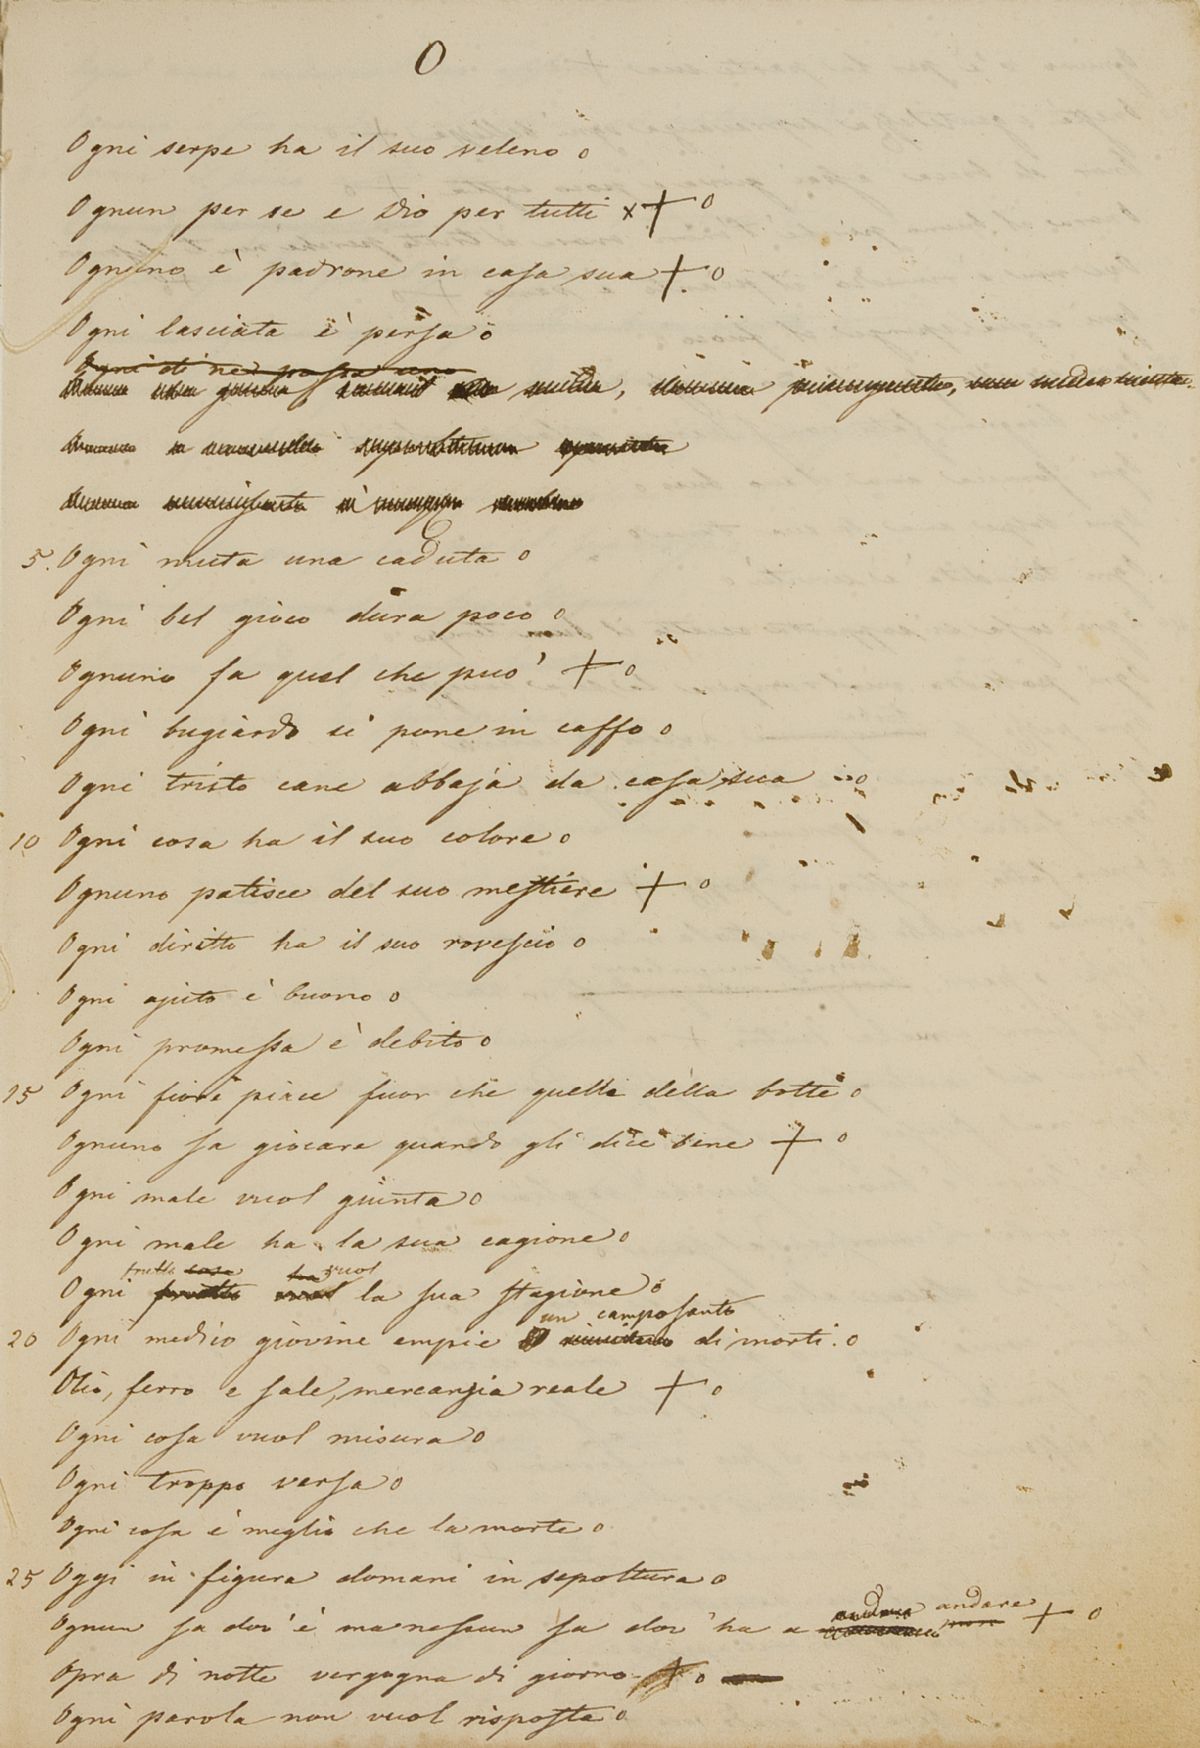 O
Ogni serpe ha il suo veleno o
Ognun per se e Dio per tutti x + o
Ognuno è padrone in casa sua + o
Ogni lasciata è persa o
Ogni dì ne passa uno
5. Ogni muta una caduta o
Ogni bel gioco dura poco o
Ognuno fa quel che può + o
Ogni bugiardo si pone in caffo o
Ogni tristo cane abbaja da casa sua o
10 Ogni cosa ha il suo colore o
Ognuno patisce del suo mestiere + o
Ogni diritto ha il suo rovescio o
Ogni ajuto è buono o
Ogni promessa è debito o
15 Ogni fiore piace fuor che quello della botte o
Ognuno sa giocare quando gli dice bene + o
Ogni male vuol giunta o
Ogni male ha la sua cagione o
frutto cosa ha vuol
Ogni frutto vuol la sua stagione o
un camposanto
20 Ogni medico giovine empie di morti. o
Olio, ferro e sale, mercanzia reale + o
Ogni cosa vuol misura o
Ogni troppo versa o
Ogni cosa è meglio che la morte o
25 Oggi in figura domani in sepoltura o
andare
Ognun sa dov'è ma nessun sa dov'ha a + o
Opra di notte vergogna di giorno + o
Ogni parola non vuol risposta o